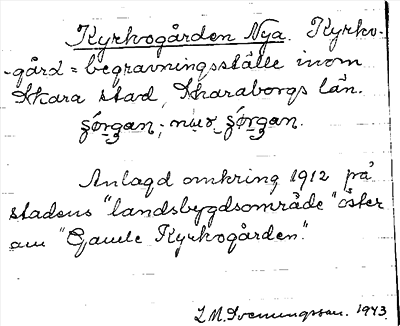 Kyrkogården Nya. Kyrko-
-gård = begravningsställe inom
Skara stad, Skaraborgs län.

Anlagd omkring 1912 på
stadens "landsbygdsområde" öster
om "Gamle Kyrkogården".
1943.